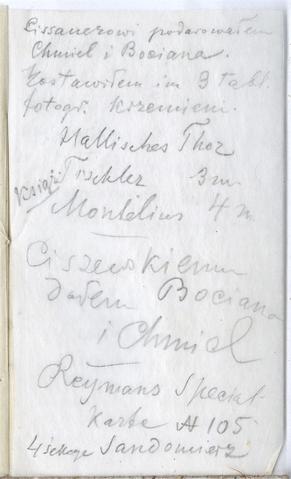 Lissauerowi podarowałem
Chmiel i Bociana.
Zostawiłem im 3 tabl.
fotogr. krzemieni.
Hallisches Thor
Książ. Tischler 3 m
Montelius 4 m
Ciszewskiemu
dałem Bociana
i Chmiel
Reymans Special-
Karte № 105
4 sekcye Sandomierz